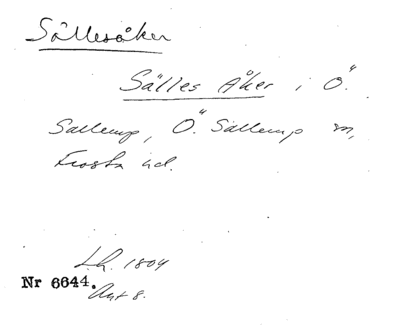 Sällesåker
Sälles Åker i Ö.
Sallerup, Ö. Sallerup sn,
Frosta hd.
Lh. 1804
Nr 6644.
Akt 8.